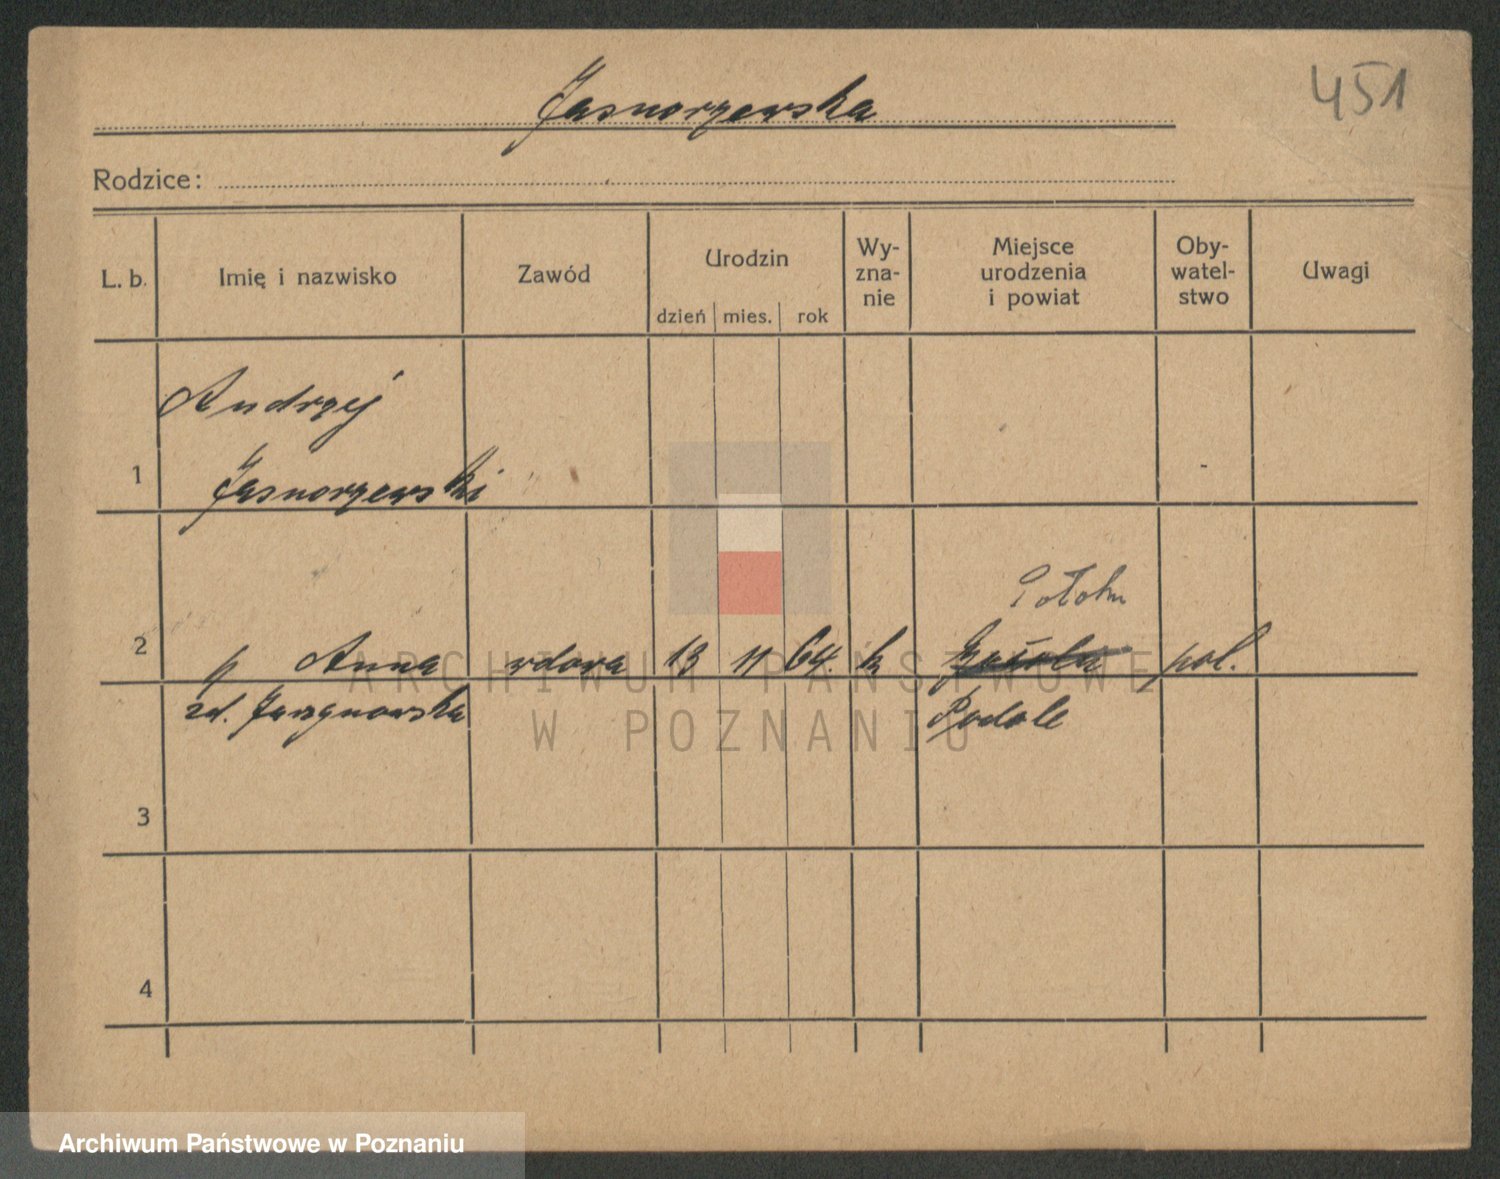 Jasnorzewska
451
Rodzice:
L. b.
Imię i nazwisko
Zawód
Urodzin
dzień mies. rok
Wy-
zna-
nie
Miejsce
urodzenia
i powiat
Oby-
watel-
stwo
Uwagi
1
Andrzej
Jasnorzewski
2
Anna wdowa 13 11 64. k pol.
Podole
3
4
ARCHIWUM PAŃSTWOWE
W POZNANIU
Archiwum Państwowe w Poznaniu